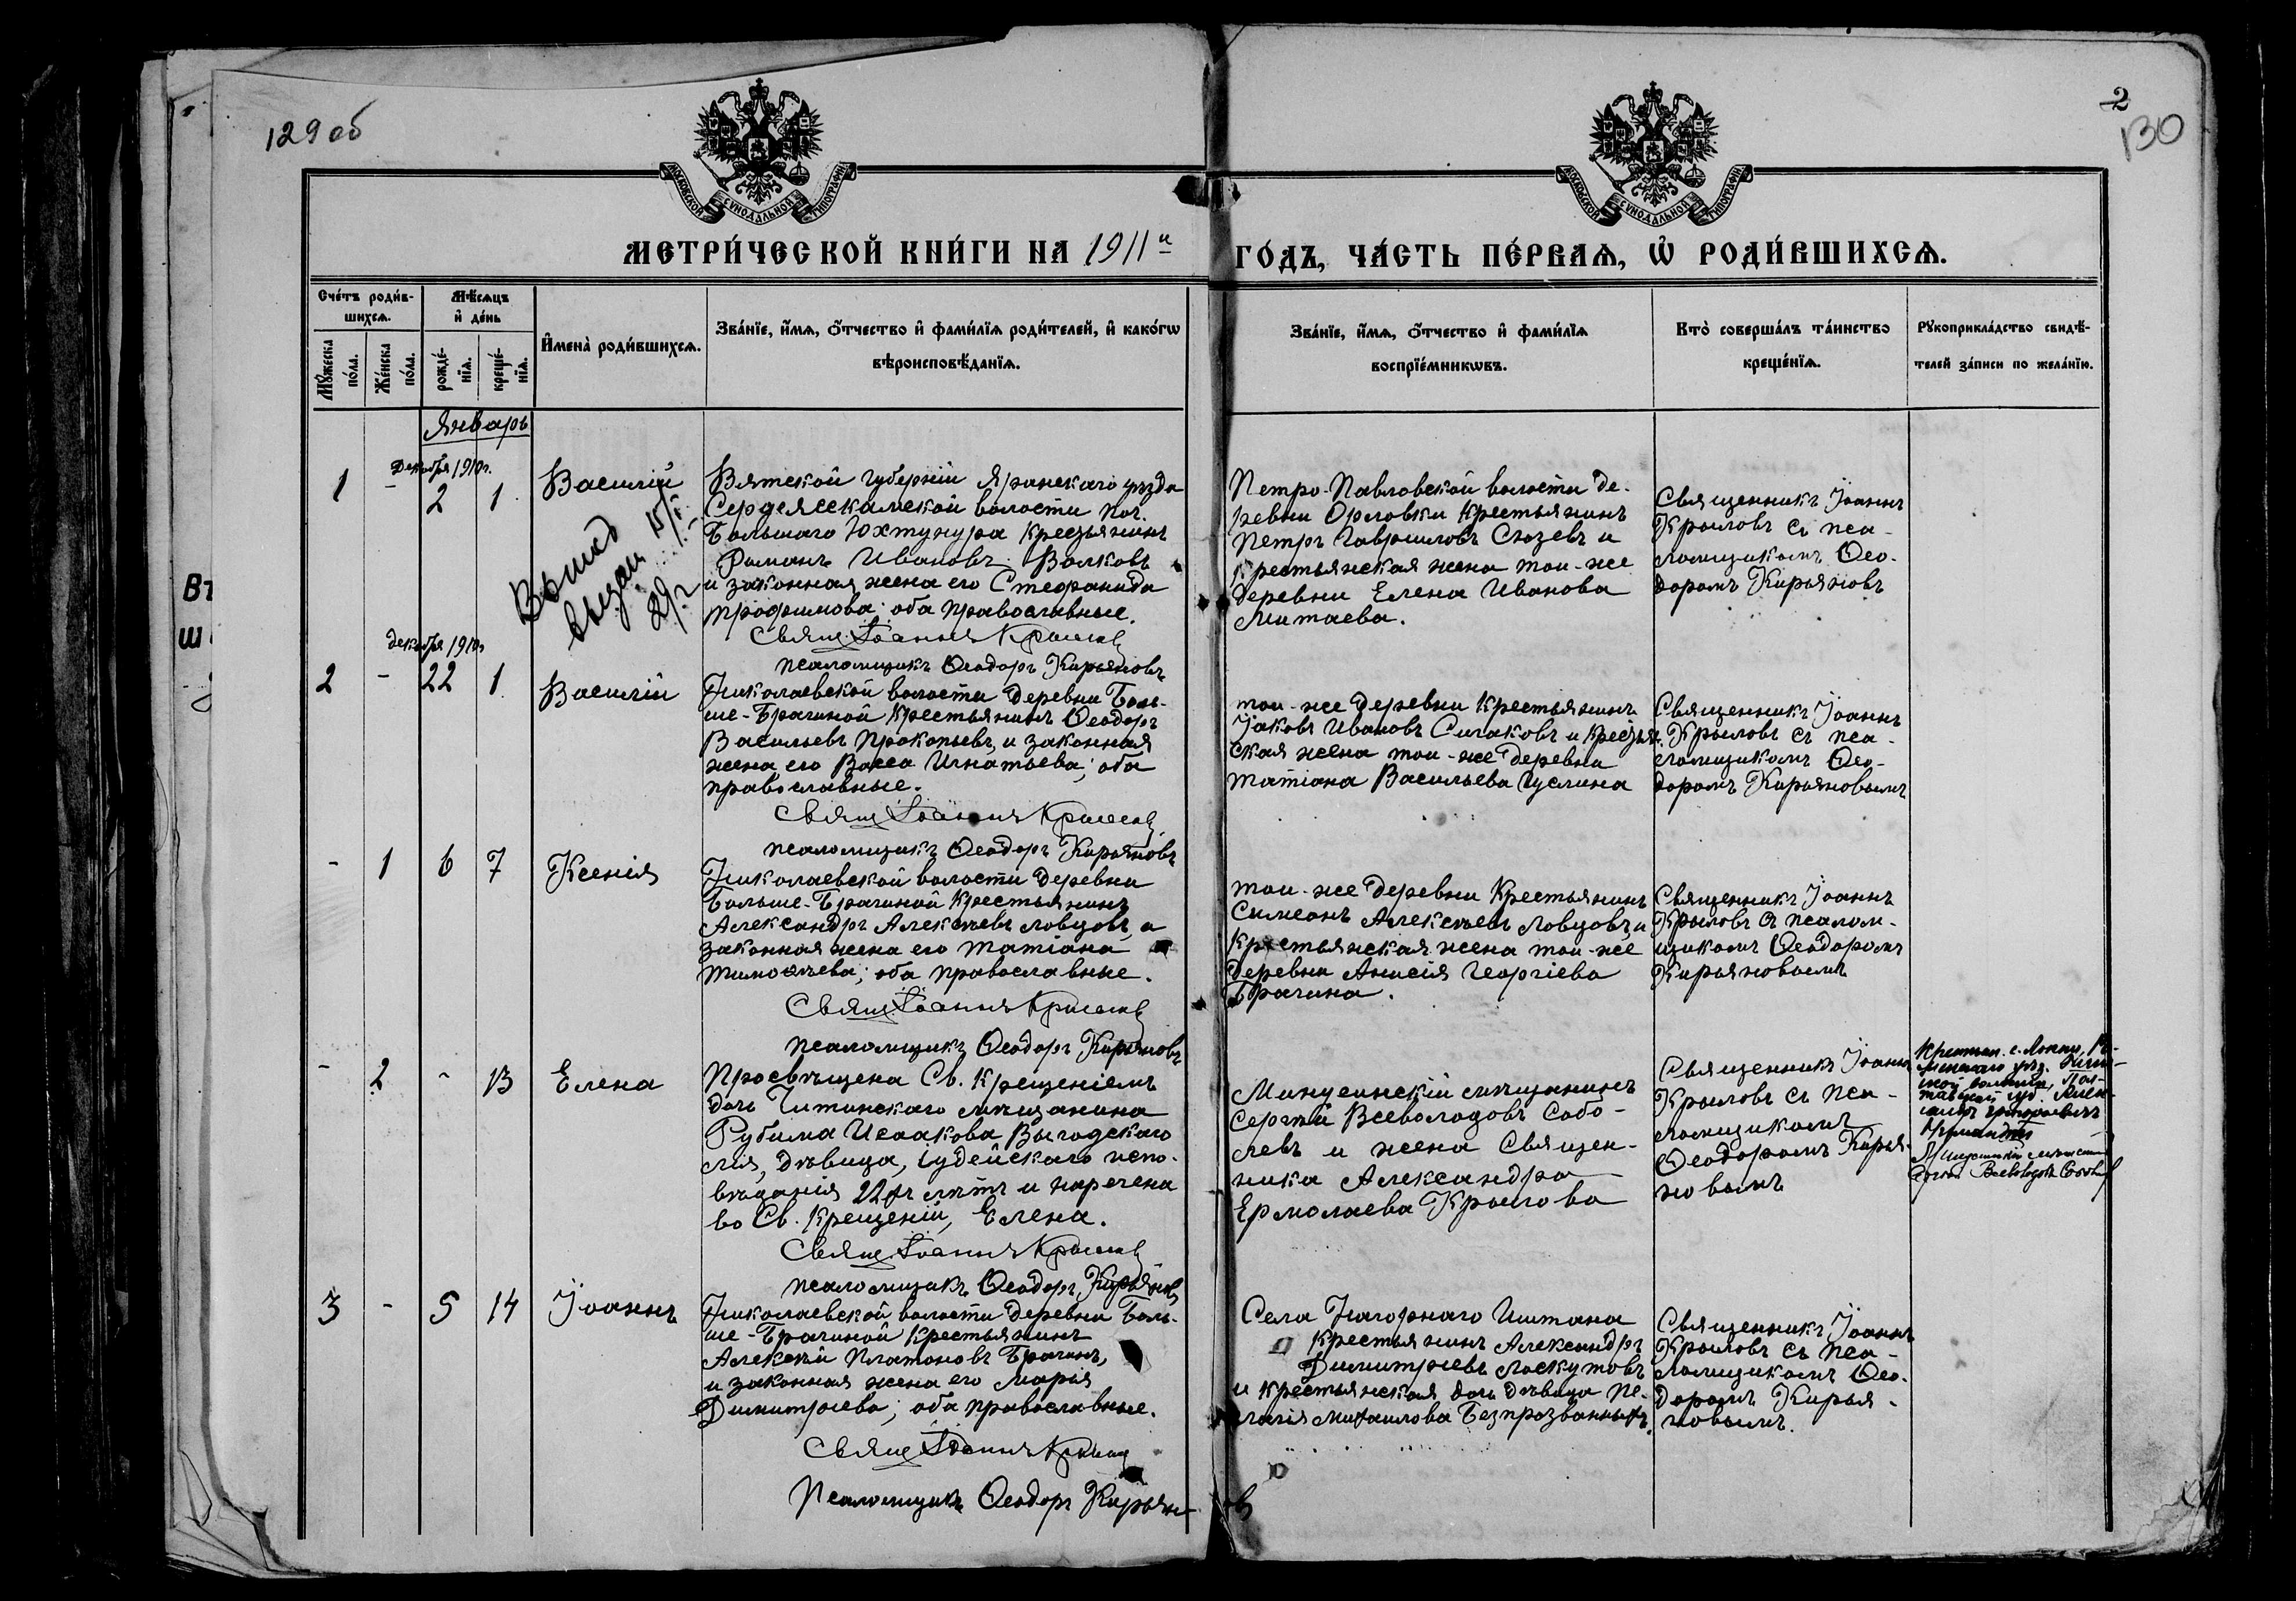 129 об
2
130
МОСКОВСКОЙ СѴНОДАЛЬНОЙ ТИПОГРАФІИ
МОСКОВСКОЙ СѴНОДАЛЬНОЙ ТИПОГРАФІИ
МЕТРИ́ЧЕСКОЙ КНИ́ГИ НА 1911й
ГО́ДЪ, ЧА́СТЬ ПЕ́РВАѦ, Ѡ҆ РОДИ́ВШИХСѦ.
Сче́тъ роди́в-
шихсѧ.
Мꙋ́жеска
по́ла.
Же́нска
по́ла.
Мѣ́сѧцъ
и҆ де́нь
рожде́-
нїѧ.
креще́-
нїѧ.
И҆мена̀ роди́вшихсѧ.
Зва́нїе, и҆́мѧ, ѻ҆́тчество и҆ фами́лїѧ роди́телей, и҆ како́гѡ
вѣроисповѣ́данїѧ.
Зва́нїе, и҆́мѧ, ѻ҆́тчество и҆ фами́лїѧ
воспрїе́мникѡвъ.
Кто̀ соверша́лъ та́инство
креще́нїѧ.
Рꙋкоприкла́дство свидѣ́-
телей за́писи по жела́нїю.
Январь
Декабря 1910г.
1 - 2 1
Василій
Вятской губерніи Яранскаго уѣзда
волости поч.
Большаго Юхтунура крестьянинъ
Романъ Ивановъ Волковъ
и законная жена его Стефанида
Трофимова; оба православные.
Свящ. Іоаннъ Крыловъ
псаломщикъ Ѳеодоръ Кирьяновъ
29 г.
Петро-Павловской волости де-
ревни Орловки крестьянинъ
Петръ Гавриловъ Сюзевъ и
крестьянская жена той-же
деревни Елена Иванова
Митаева.
Священникъ Іоаннъ
Крыловъ съ пса-
ломщикомъ Ѳео-
доромъ Кирьяновъ
декабря 1910г
2 - 22 1
Василій
Николаевской волости деревни Боль-
ше-Брагиной крестьянинъ Ѳеодоръ
Васильевъ Прокопьевъ, и законная
жена его Васса Игнатьева; оба
православные.
Свящ. Іоаннъ Крыловъ
псаломщикъ Ѳеодоръ Кирьяновъ
той-же деревни крестьянинъ
Іаковъ Ивановъ Силаковъ и крестьян-
ская жена той-же деревни
Татіана Васильева Гуслина
Священникъ Іоаннъ
Крыловъ съ пса-
ломщикомъ Ѳео-
доромъ Кирьяновымъ
- 1 6 7
Ксенія
Николаевской волости деревни
Больше-Брагиной крестьянинъ
Александръ Алексѣевъ Ловцовъ, и
законная жена его Татіана
Тимоѳеева; оба православные.
Свящ. Іоаннъ Крыловъ
псаломщикъ Ѳеодоръ Кирьяновъ
той-же деревни крестьянинъ
Симеонъ Алексѣевъ Ловцовъ и
крестьянская жена той-же
деревни Анисія Георгіева
Брагина.
Священникъ Іоаннъ
Крыловъ съ псалом-
щикомъ Ѳеодоромъ
Кирьяновымъ
- 2 - 13
Елена
Просвѣщена Св. Крещеніемъ
дочь Читинскаго мѣщанина
Рубима Исаакова Выгодскаго
Лія, дѣвица, іудейскаго испо-
вѣданія 22хъ лѣтъ и наречена
во Св. Крещеніи, Елена.
Свящ. Іоаннъ Крыловъ
псаломщикъ Ѳеодоръ Кирьяновъ
Минусинскій мѣщанинъ
Сергѣй Всеволодовъ Собо-
левъ и жена священ-
ника Александра
Ермолаева Крылова
Священникъ Іоаннъ
Крыловъ съ пса-
ломщикомъ
Ѳеодоромъ Кирья-
новымъ
3 - 5 14
Іоаннъ
Николаевской волости деревни Боль-
ше-Брагиной крестьянинъ
Алексѣй Платоновъ Брагинъ,
и законная жена его Марія
Димитріева; оба православные.
Свящ. Іоаннъ Крыловъ
Псаломщикъ Ѳеодоръ Кирьяновъ
Села Нагорнаго Иштана
крестьянинъ Александръ
Димитріевъ Лоскутовъ
и крестьянская дочь дѣвица Пе-
лагія Михаилова Безпрозванныхъ.
Священникъ Іоаннъ
Крыловъ съ пса-
ломщикомъ Ѳео-
доромъ Кирья-
новымъ.